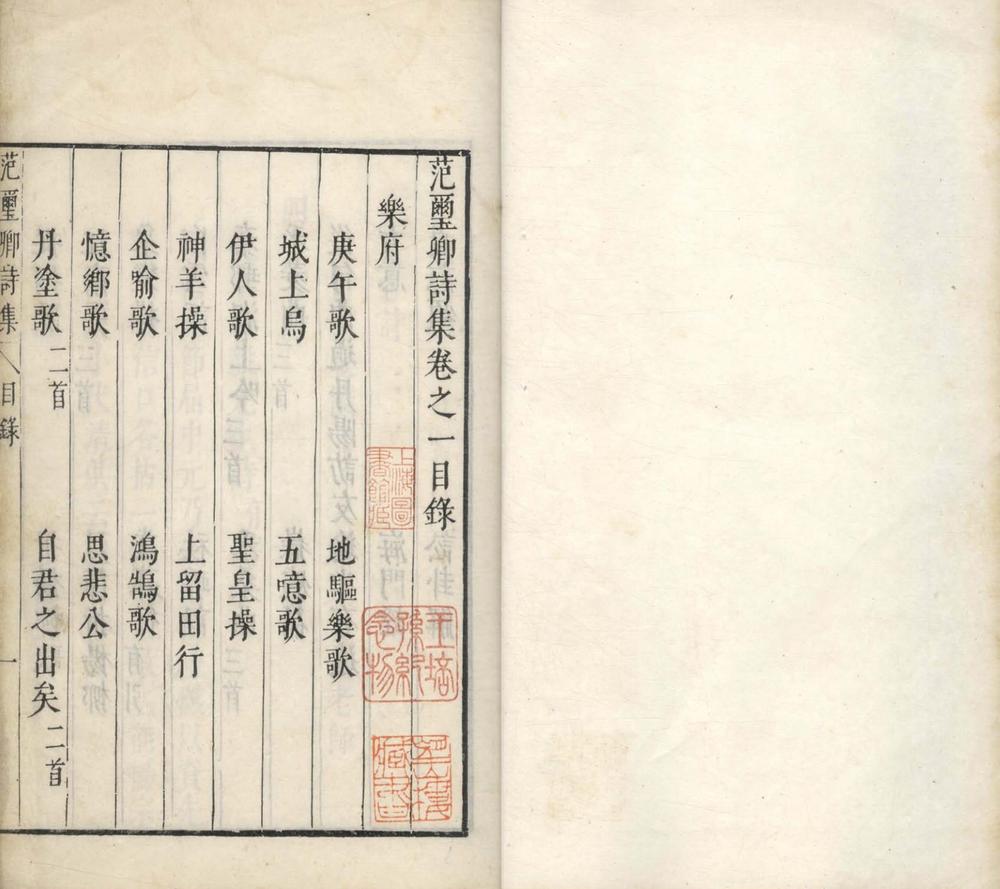 范璽卿詩集卷之一目錄
樂府
庚午歌 地驅樂歌
城上烏 五噫歌
伊人歌 聖皇操
神羊操 上留田行
企喻歌 鴻鵠歌
憶鄉歌 思悲公
丹塗歌 二首 自君之出矣 二首
范璽卿詩集 目錄 一
上海圖書館藏
王培孫紀念物